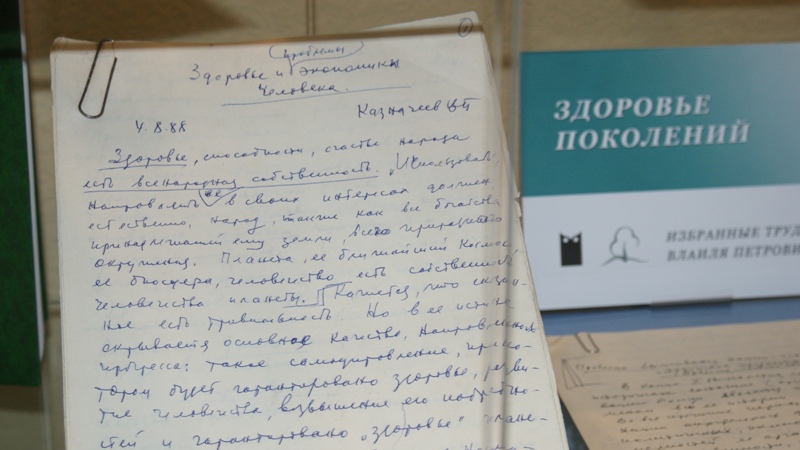 1
проблемы
Здоровье и экономики
человека.
Казначеев ВП
4.8.88
Здоровье, способности, счастье народа
есть всенародная собственность. Использовать,
направлять ее в своих интересах должен
естественно, народ, также как все богатства
принадлежащей ему земли, всего природного
окружения. Планета, ее ближайший космос,
ее биосфера, человечество есть собственность
человечества планеты. Кажется, что сказан-
ное есть тривиальность. Но в ее истине
скрывается основное качество, направленность
прогресса: такое самоуправление, при ко-
тором будет гарантировано здоровье, разви-
тие человечества, возвышение его потребно-
стей и гарантировано „здоровье" плане-
ЗДОРОВЬЕ
ПОКОЛЕНИЙ
ИЗБРАННЫЕ ТРУД
ВЛАИЛЯ ПЕТРОВИ